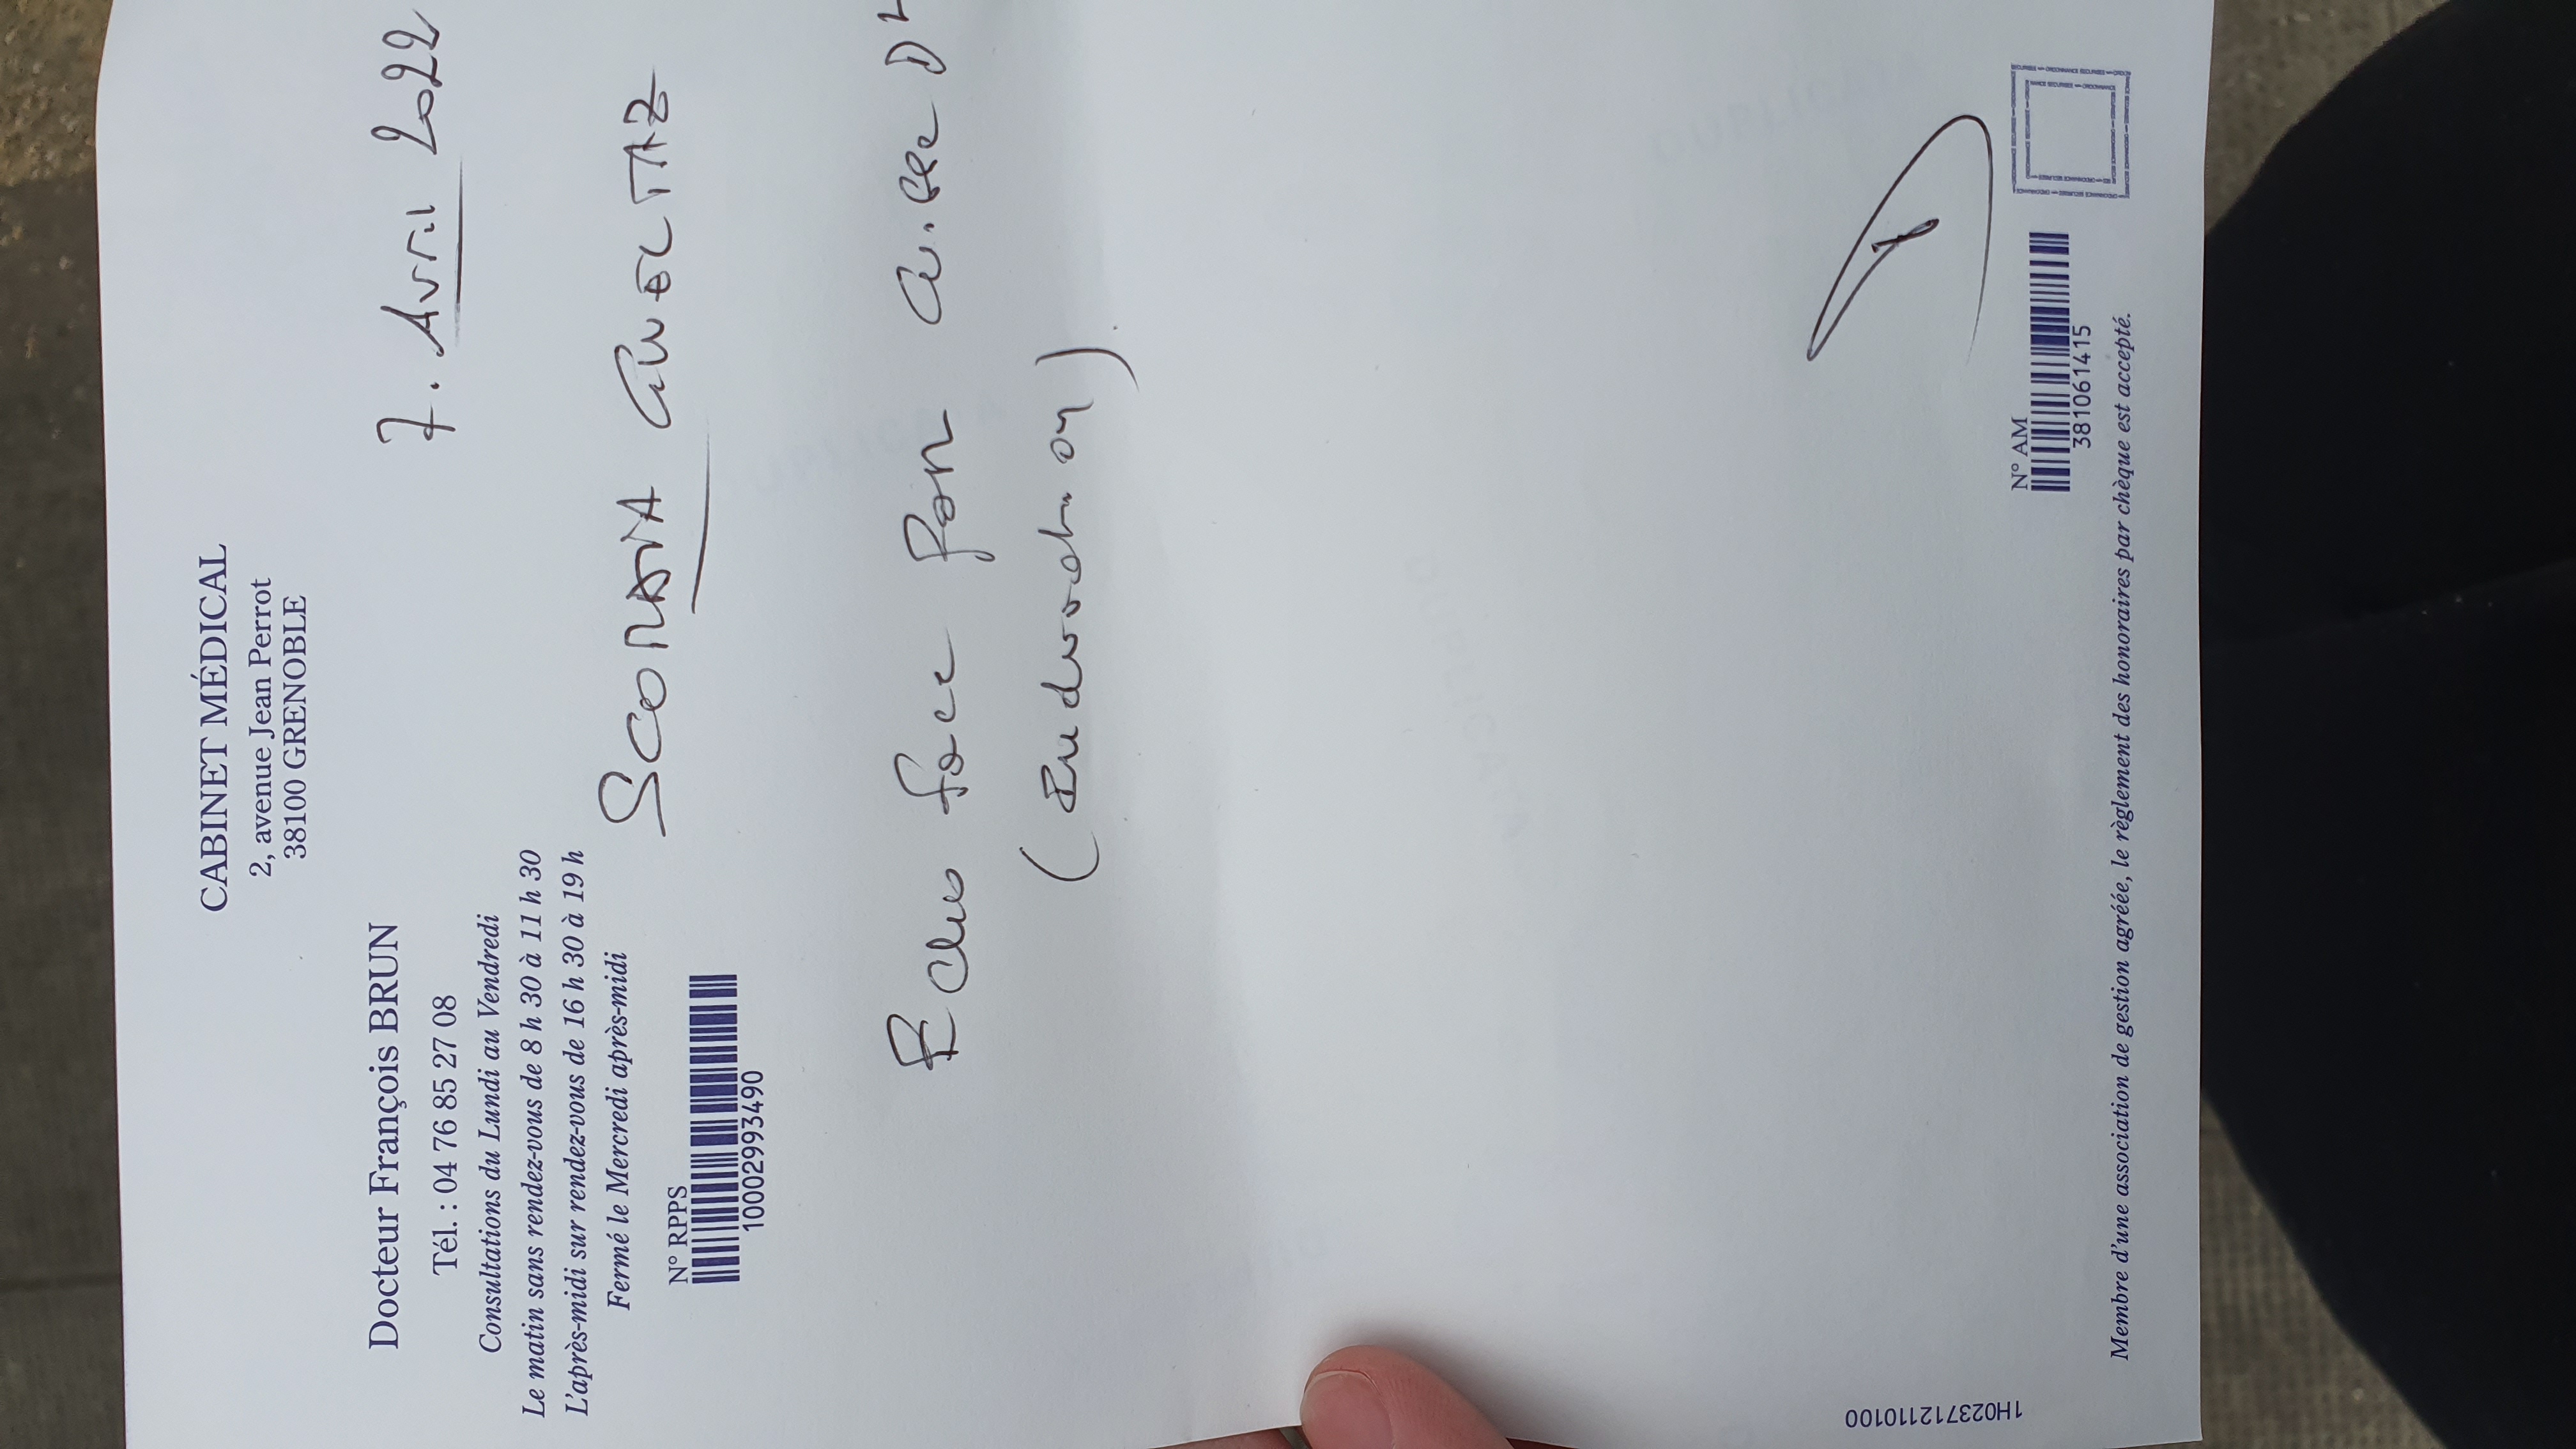 CABINET MÉDICAL
2, avenue Jean Perrot
38100 GRENOBLE
Docteur François BRUN
Tél. : 04 76 85 27 08
Consultations du Lundi au Vendredi
Le matin sans rendez-vous de 8 h 30 à 11 h 30
L'après-midi sur rendez-vous de 16 h 30 à 19 h
Fermé le Mercredi après-midi
N° RPPS
10002993490
7. Avril 2022
GWELTAZ
Echo face post cuisse Dt
(Induration).
1H023712110100
N° AM
381061415
Membre d'une association de gestion agréée, le règlement des honoraires par chèque est accepté.